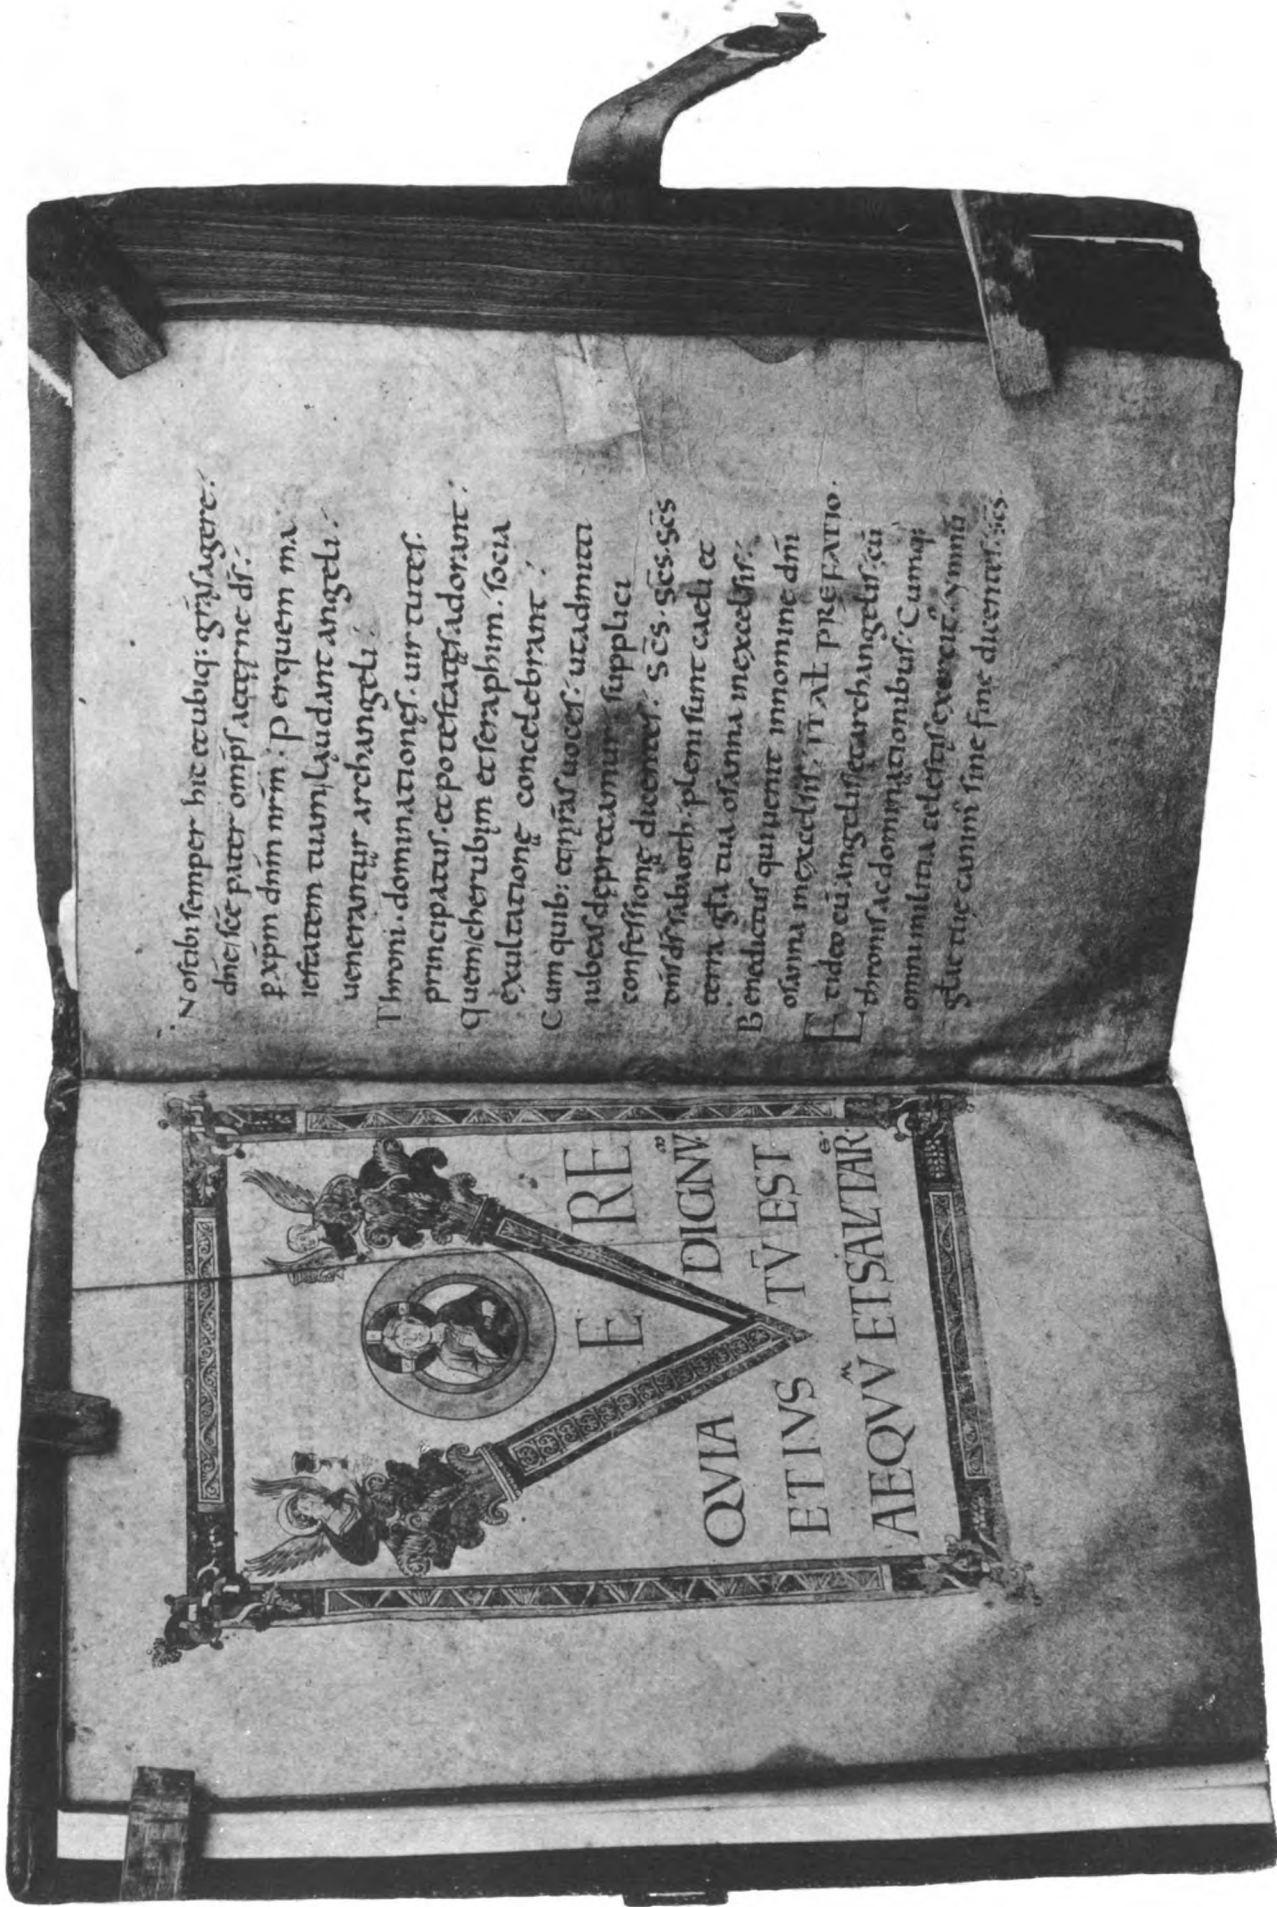 VERE
QVIA DIGNV̄
ET IVS TV̄ EST
AEQVV̄ ET SALVTAR̄E·
Nos tibi semper hic et ubiq: gr̄as agere·
dn̄e sc̄e pater omp̄s aeterne ds̄·
p xp̄m dn̄m nr̄m· Per quem ma
iestatem tuam laudant angeli·
uenerantur archangeli·
Throni· dominationes· uirtutes·
principatus· et potestates adorant·
Quem cherubim et seraphim· socia
exultatione concelebrant·
Cum quib: et nr̄as uoces· ut admitti
iubeas deprecamur supplici
confessione dicentes· Sc̄s· sc̄s· sc̄s
dn̄s ds̄ sabaoth· pleni sunt caeli et
terra gl̄a tua osanna in excelsis·
Benedictus qui uenit in nomine dn̄i
osanna in excelsis· ITAL PREFATIO·
Et ideo cū angelis et archangelis· cū
thronis ac dominationibus· Cumq:
omni militia caelestis exercit̄· ymnū
gl̄ae tuę canim̄ sine fine dicentes· sc̄s·